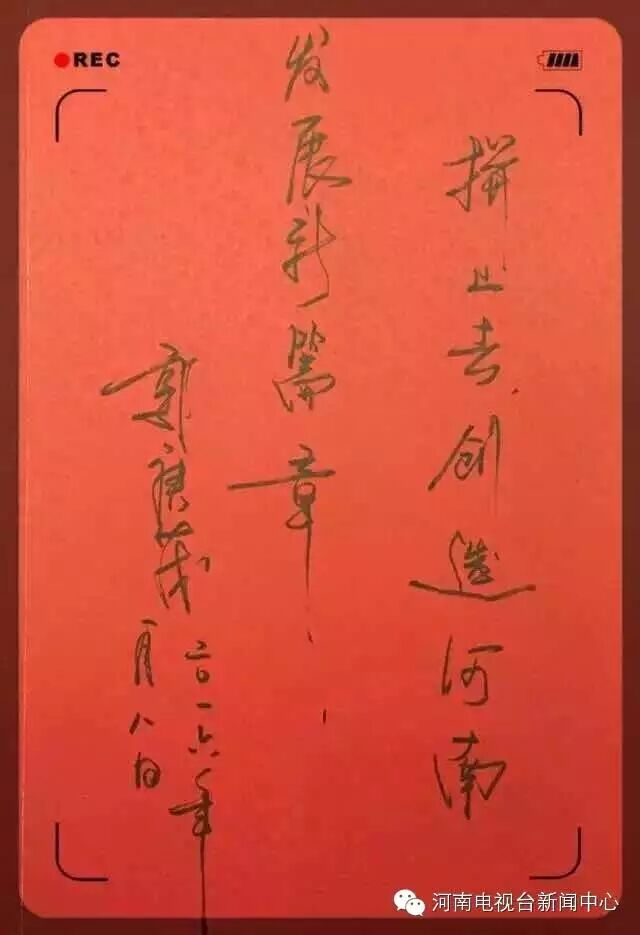 REC
拼上去创造河南
发展新篇章
郭庚茂
二〇一六年
一月八日
河南电视台新闻中心